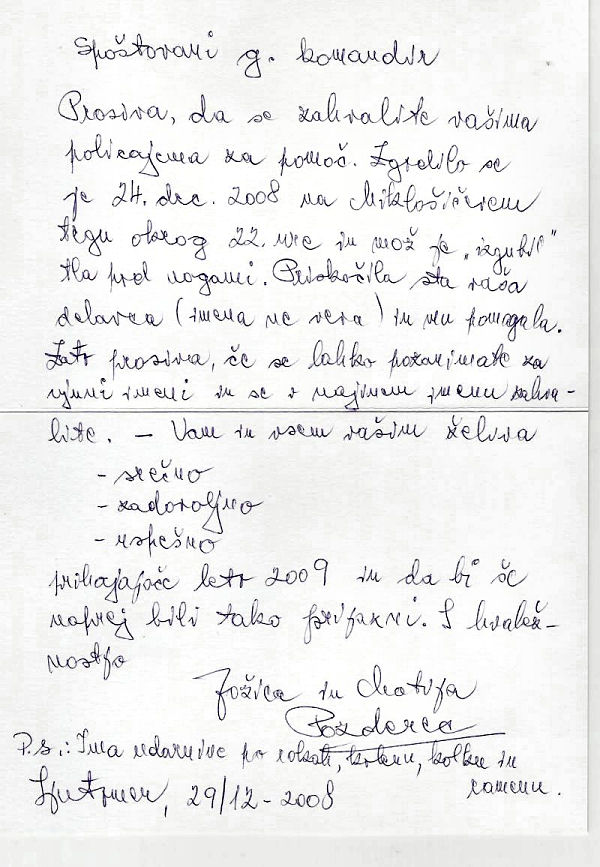 Spoštovani g. komandir
Prosiva, da se zahvalite vašima
policajema za pomoč. Zgodilo se
je 24. dec. 2008 na Miklošičevem
tegu okrog 22. ure in mož je „izgubil"
tla pod nogami. Priskočila sta vaša
delavca (imena ne veva) in mu pomagala.
Zato prosiva, če se lahko pozanimate za
njuni imeni in se v najinem imenu zahva-
lite. – Vam in vsem vašim želiva
- srečno
- zadovoljno
- uspešno
prihajajoče leto 2009 in da bi še
naprej bili tako prijazni. S hvalež-
nostjo
Jožica in Matija
Pozderec
P.s.: Ima udarnine po rokah, kolenu, kolku in
ramenu.
Ljutomer, 29/12-2008